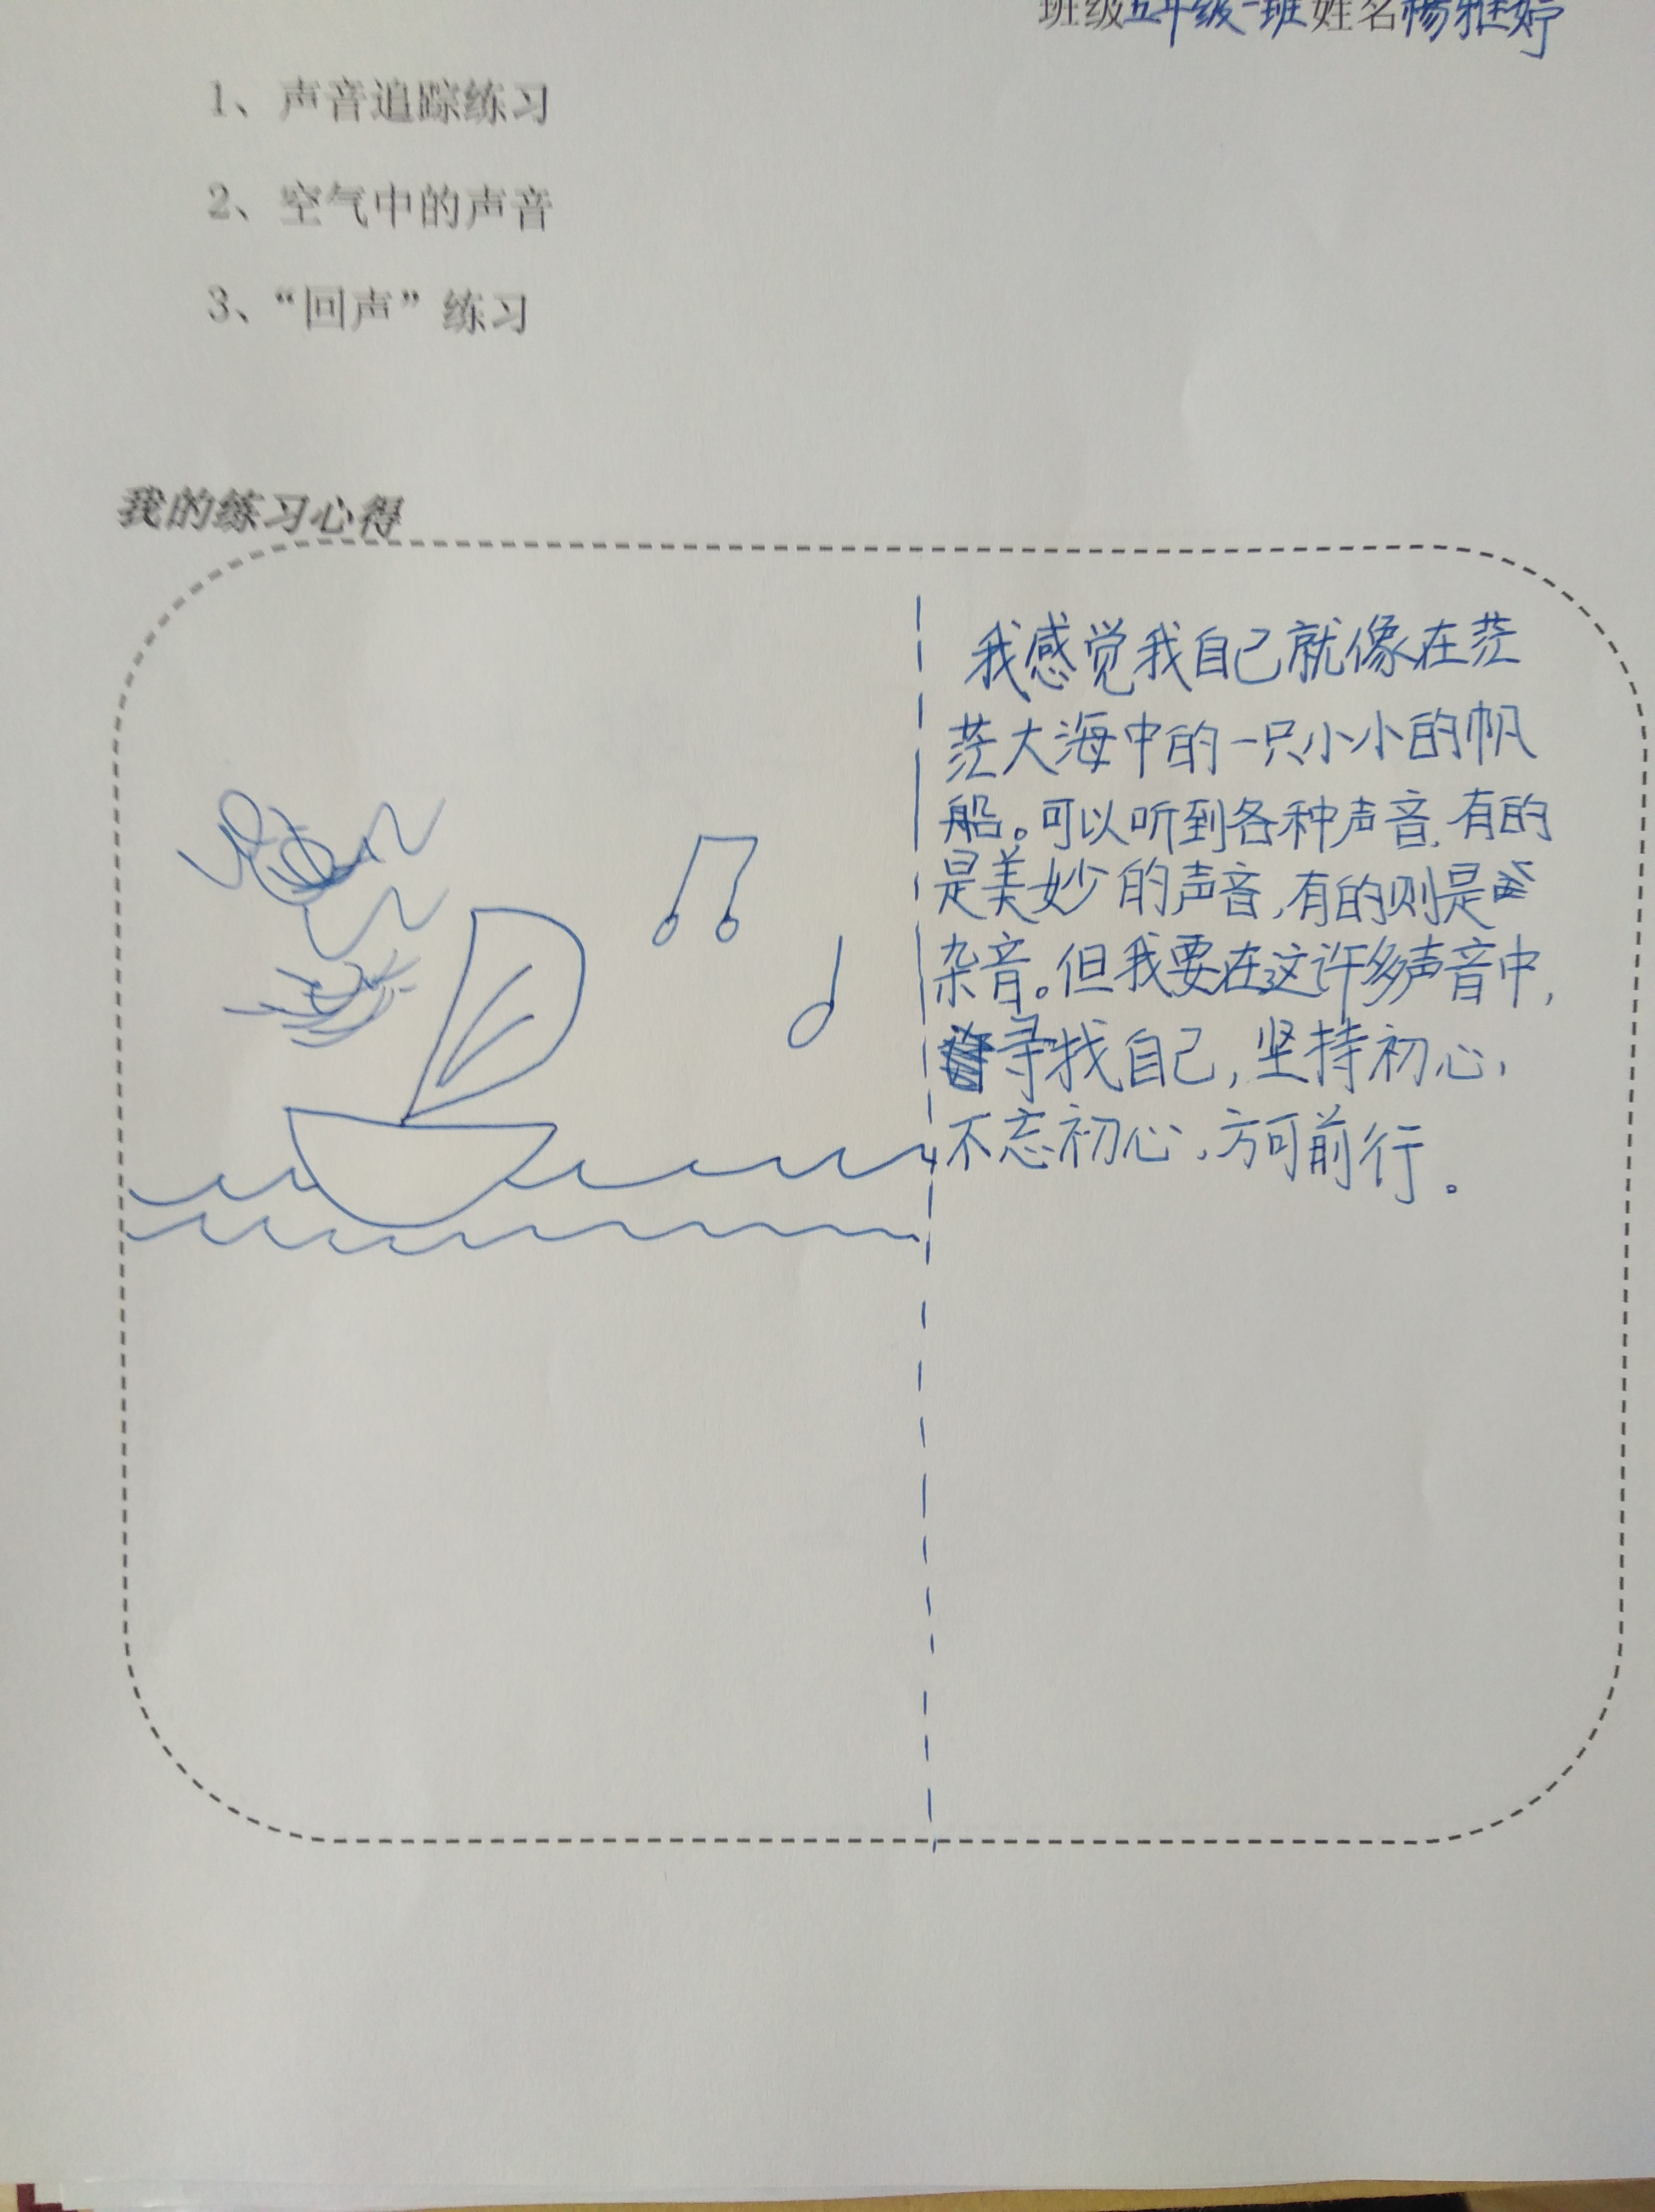 班级五年级一班姓名杨雅婷
1、声音追踪练习
2、空气中的声音
3、“回声”练习
我的练习心得
我感觉我自己就像在茫
茫大海中的一只小小的帆
船。可以听到各种声音,有的
是美妙的声音,有的则是
杂音。但我要在这许多声音中,
寻找自己,坚持初心,
不忘初心,方可前行。